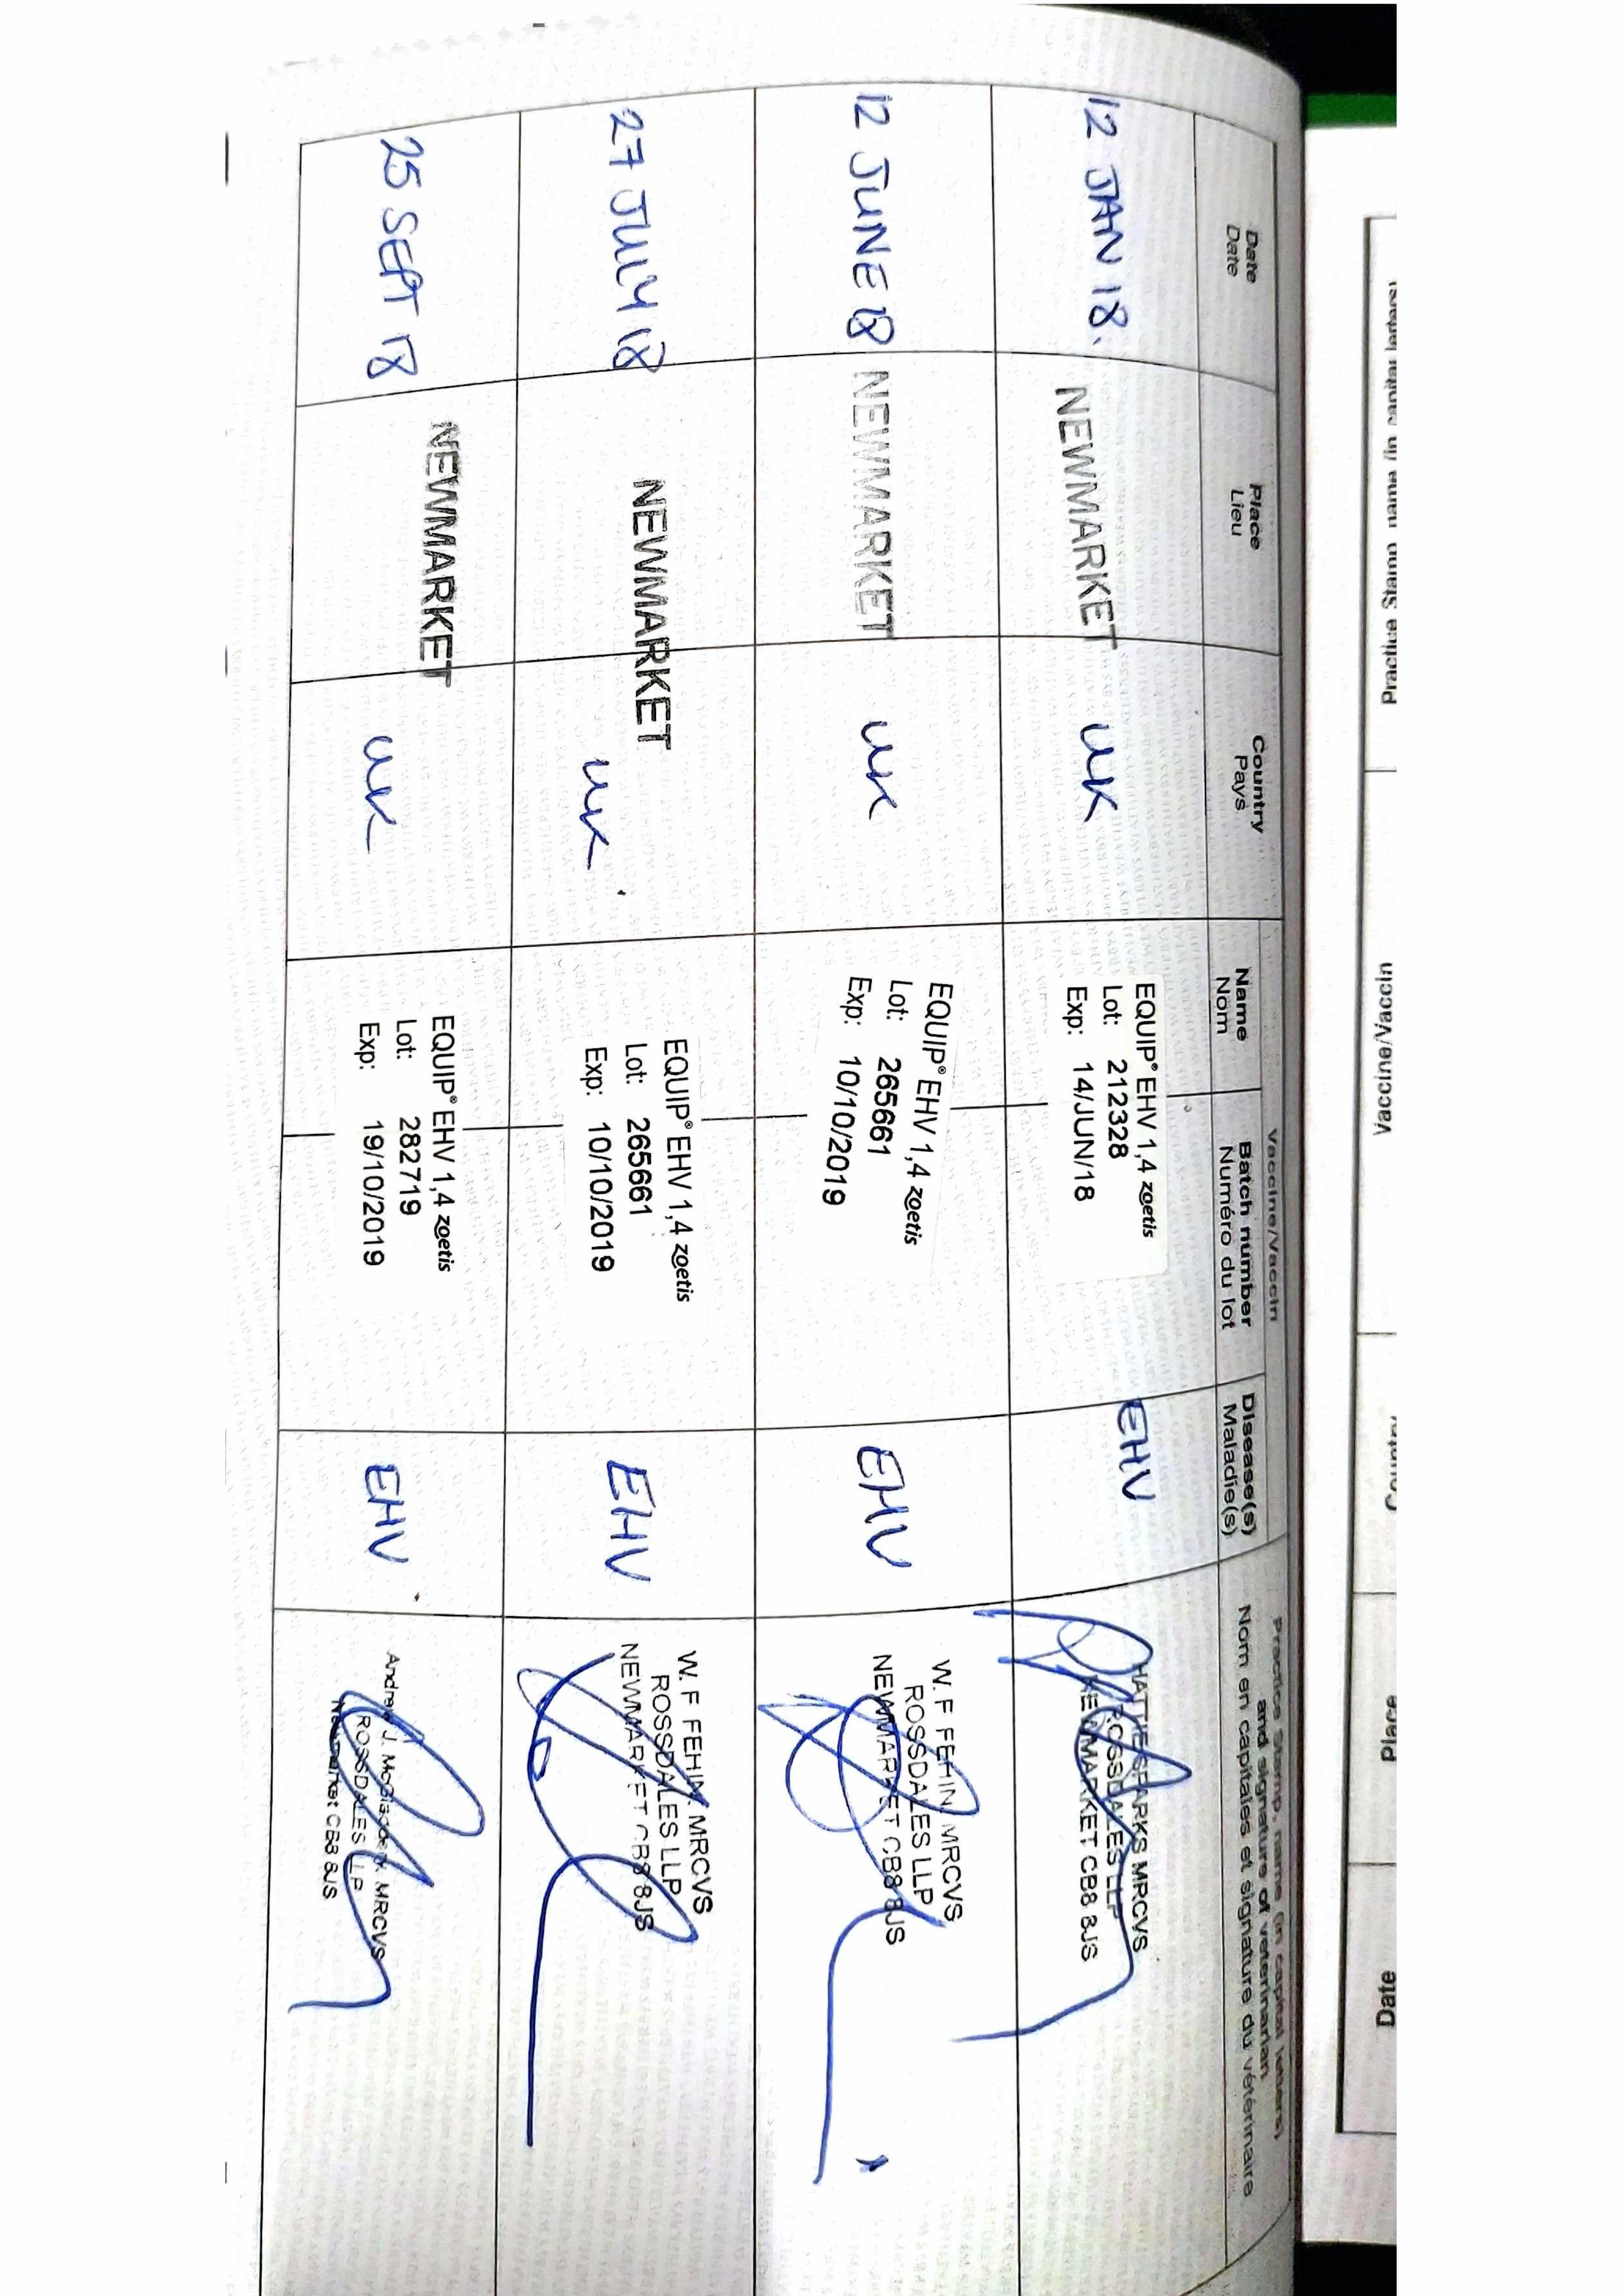 Vaccine/Vaccin
Date
Date
Place
Lieu
Country
Pays
Name
Nom
Batch number
Numéro du lot
Disease(s)
Maladie(s)
Practice Stamp, name (in capital letters)
and signature of veterinarian
Nom en capitales et signature du vétérinaire
12 JAN 18.
NEWMARKET
UK
EQUIP® EHV 1,4 zoetis
Lot: 212328
Exp: 14/JUN/18
EHV
HATTIE SPARKS MRCVS
ROSSDALES LLP
NEWMARKET CB8 8JS
12 JUNE 18
NEWMARKET
UK
EQUIP® EHV 1,4 zoetis
Lot: 265661
Exp: 10/10/2019
EHV
W. F FEHIN MRCVS
ROSSDALES LLP
NEWMARKET CB8 8JS
27 JULY 18
NEWMARKET
UK
EQUIP® EHV 1,4 zoetis
Lot: 265661
Exp: 10/10/2019
EHV
W. F FEHIN MRCVS
ROSSDALES LLP
NEWMARKET CB8 8JS
25 SEPT 18
NEWMARKET
UK
EQUIP® EHV 1,4 zoetis
Lot: 282719
Exp: 19/10/2019
EHV
Andrew J. MRCVS
ROSSDALES LLP
Newmarket CB8 8JS
Date
Place
Vaccine/Vaccin
Practice Stamp, name (in capital letters)